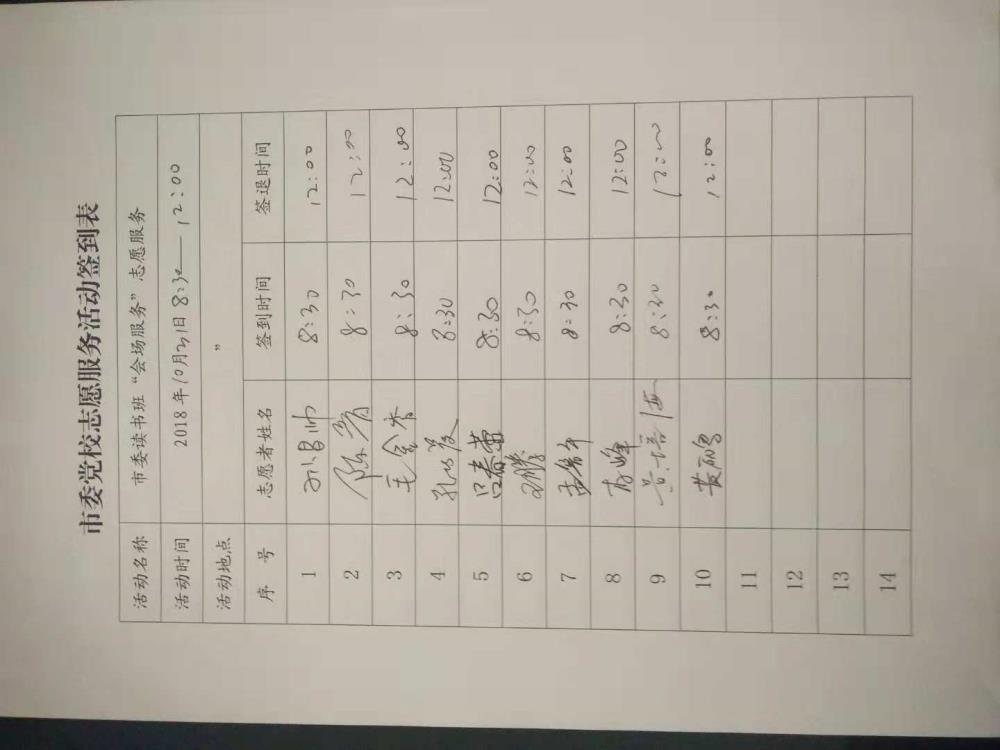 市委党校志愿服务活动签到表
活动名称 市委读书班“会场服务”志愿服务
活动时间 2018年10月31日 8:30—12:00
活动地点 ”
序 号 志愿者姓名 签到时间 签退时间
1 孙昌帅 8:30 12:00
2 8:30 12:00
3 毛金香 8:30 12:00
4 8:30 12:00
5 吕春蕾 8:30 12:00
6 8:30 12:00
7 8:30 12:00
8 8:30 12:00
9 8:30 12:00
10 黄丽 8:30 12:00
11
12
13
14